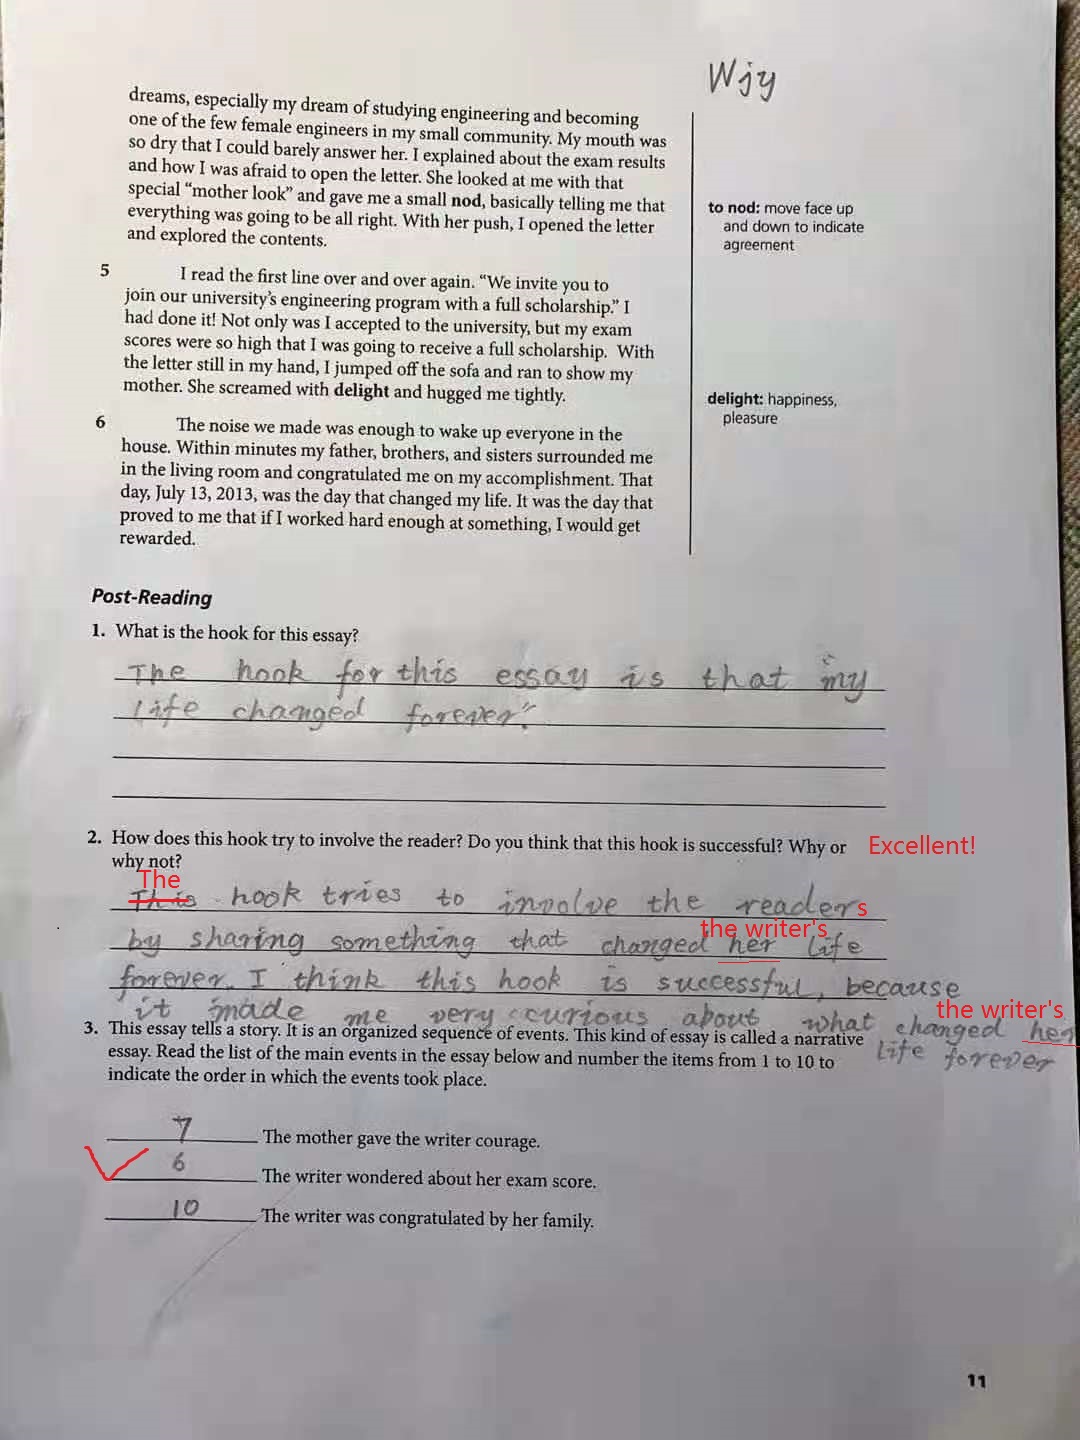 Wjy
dreams, especially my dream of studying engineering and becoming
one of the few female engineers in my small community. My mouth was
so dry that I could barely answer her. I explained about the exam results
and how I was afraid to open the letter. She looked at me with that
special “mother look” and gave me a small nod, basically telling me that
everything was going to be all right. With her push, I opened the letter
and explored the contents.
to nod: move face up
and down to indicate
agreement
5 I read the first line over and over again. “We invite you to
join our university’s engineering program with a full scholarship.” I
had done it! Not only was I accepted to the university, but my exam
scores were so high that I was going to receive a full scholarship. With
the letter still in my hand, I jumped off the sofa and ran to show my
mother. She screamed with delight and hugged me tightly.
delight: happiness,
pleasure
6 The noise we made was enough to wake up everyone in the
house. Within minutes my father, brothers, and sisters surrounded me
in the living room and congratulated me on my accomplishment. That
day, July 13, 2013, was the day that changed my life. It was the day that
proved to me that if I worked hard enough at something, I would get
rewarded.
Post-Reading
1. What is the hook for this essay?
The hook for this essay is that “my
life changed forever.”
2. How does this hook try to involve the reader? Do you think that this hook is successful? Why or
why not?
Excellent!
The
This hook tries to involve the readers
the writer's
by sharing something that changed her life
forever. I think this hook is successful, because
the writer's
it made me very curious about what changed her
life forever
3. This essay tells a story. It is an organized sequence of events. This kind of essay is called a narrative
essay. Read the list of the main events in the essay below and number the items from 1 to 10 to
indicate the order in which the events took place.
7 The mother gave the writer courage.
6 The writer wondered about her exam score.
10 The writer was congratulated by her family.
11